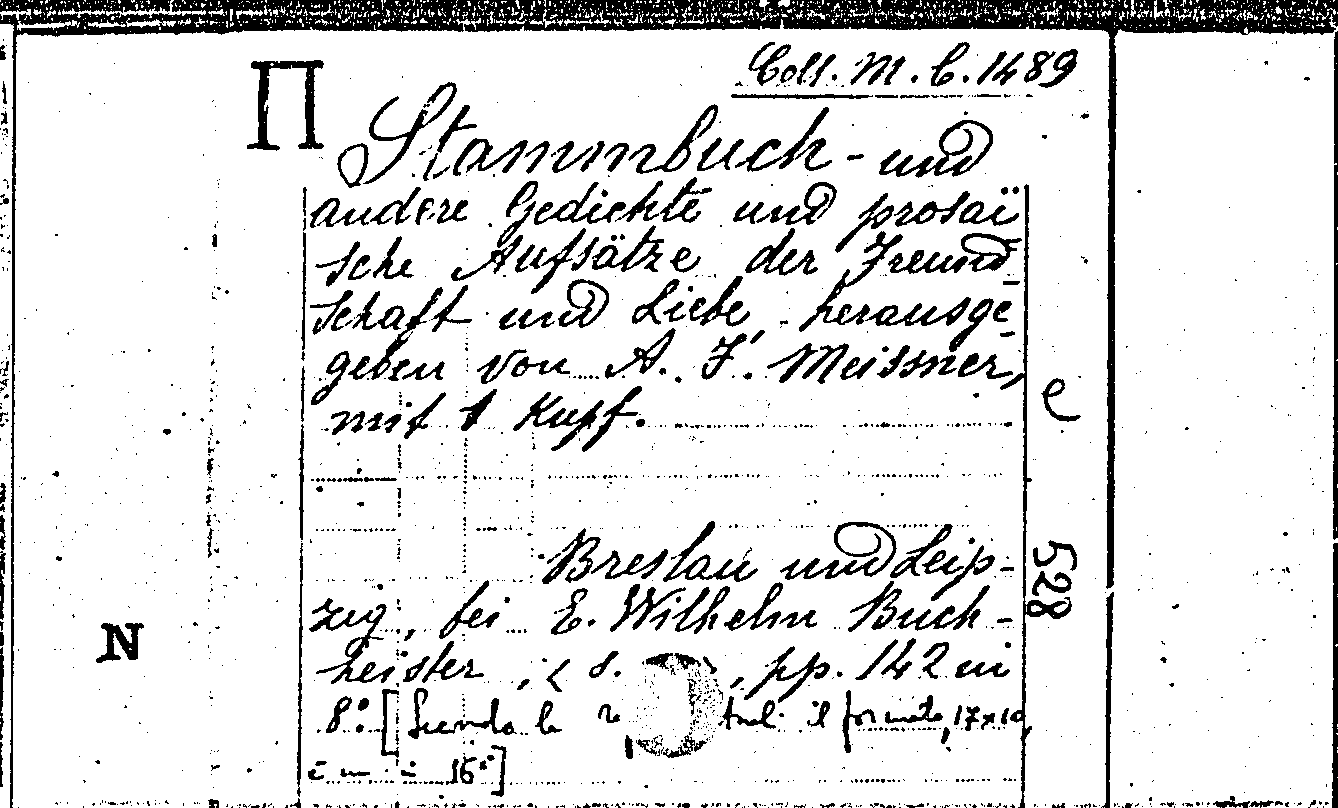 Π
Coll. M. C. 1489
Stammbuch - und
andere Gedichte und prosaï
sche Aufsätze der Freund_
schaft und Liebe, herausge_
geben von A. F. Meissner,
mit 1 Kupf.
e
Breslau und Leip-
zig, bei E. Wilhelm Buch-
heister, s. , pp. 142 in
8º [Secondo le il formato, 17x10,
16º]
528
N